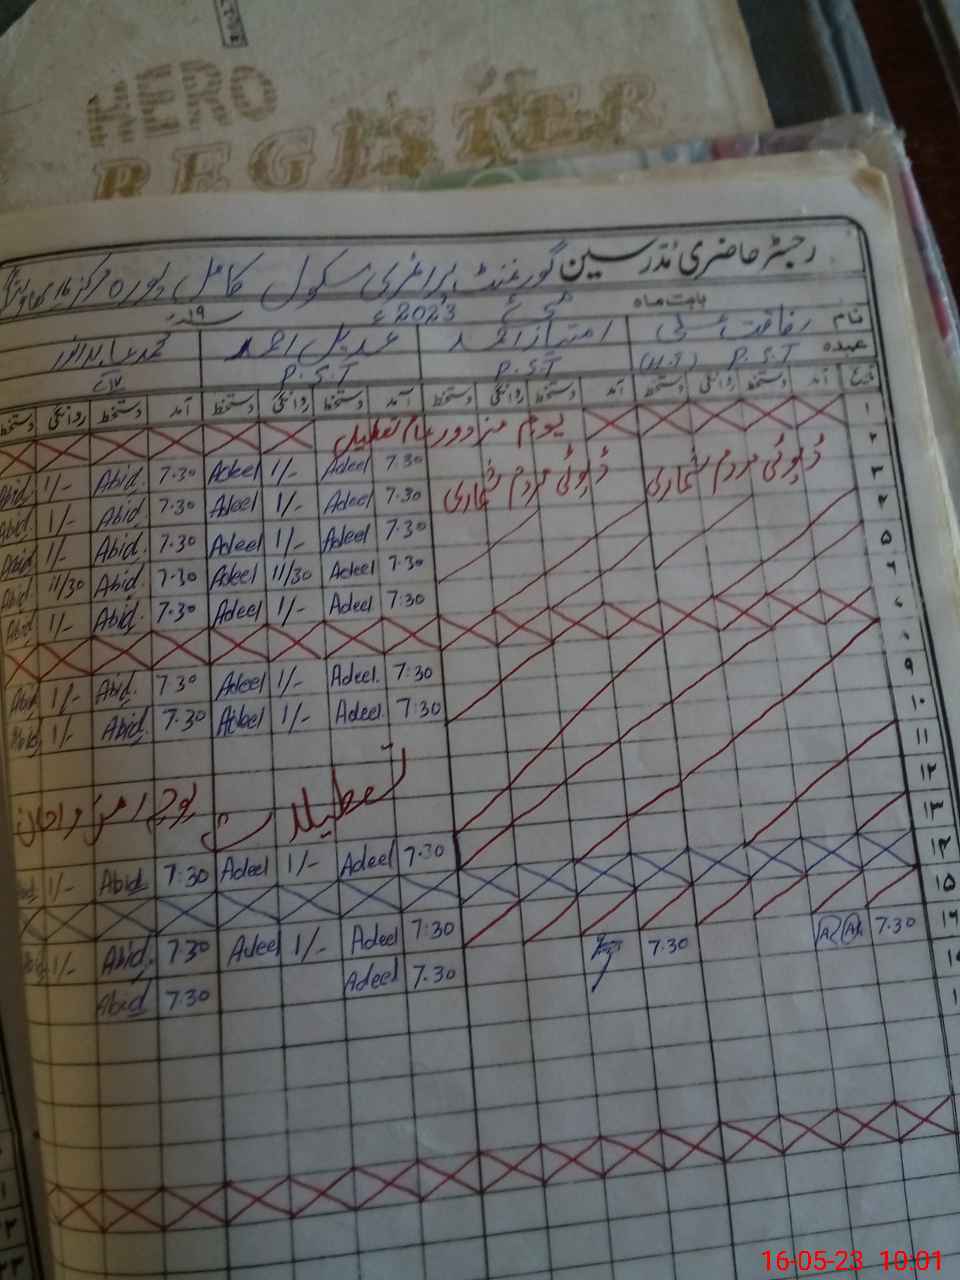 HERO
REGISTER
رجسٹر حاضری مدرسین گورنمنٹ پرائمری سکول کامل پورہ مرکز 16
بابت ماہ مئی 2023ء ۱۹
نام رفاقت علی امتیاز احمد عدیل احمد محمد عابد
عہدہ P.S.T (H.T) P.S.T P.S.T
تاریخ آمد دستخط روانگی دستخط آمد دستخط روانگی دستخط آمد دستخط روانگی دستخط آمد دستخط روانگی دستخط
۱ یوم مزدور عام تعطیل
۲ ڈیوٹی مردم شماری ڈیوٹی مردم شماری 7.30 Adeel 1/- Adeel 7.30 Abid. 1/- Abid
۳ 7.30 Adeel 1/- Adeel 7.30 Abid. 1/- Abid
۴ 7.30 Adeel 1/- Adeel 7.30 Abid. 1/- Abid
۵ 7.30 Adeel 11/30 Adeel 7.30 Abid. 11/30 Abid
۶ 7:30 Adeel 1/- Adeel 7.30 Abid. 1/- Abid
۷
۸ 7:30 Adeel. 1/- Adeel 7.30 Abid. 1/- Abid
۹ 7:30 Adeel 1/- Adeel 7.30 Abid. 1/- Abid
10
11 تعطیلات بوجہ امن و امان
۱۲
۱۳ 7.30 Adeel 1/- Adeel 7:30 Abid 1/-
۱۴
۱۵ 7:30 Adeel 1/- Adeel 7.30 Abid. 1/-
۱۶ 7.30 7.30 7.30 Adeel 7.30 Abid
16-05-23 10:01